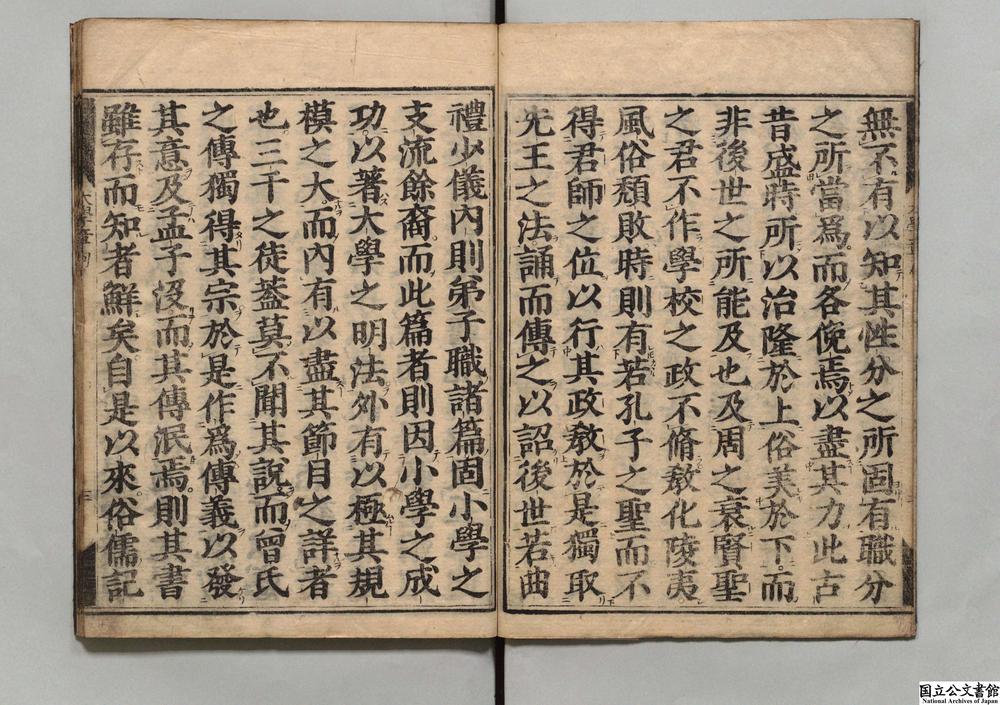 無不有以知其性分之所固有職分
之所當爲而各俛焉以盡其力此古
昔盛時所以治隆於上俗美於下而
非後世之所能及也及周之衰賢聖
之君不作學校之政不脩敎化陵夷
風俗頹敗時則有若孔子之聖而不
得君師之位以行其政敎於是獨取
先王之法誦而傳之以詔後世若曲
禮少儀內則弟子職諸篇固小學之
支流餘裔而此篇者則因小學之成
功以著大學之明法外有以極其規
模之大而內有以盡其節目之詳者
也三千之徒蓋莫不聞其說而曾氏
之傳獨得其宗於是作爲傳義以發
其意及孟子沒而其傳泯焉則其書
雖存而知者鮮矣自是以來俗儒記
国立公文書館
National Archives of Japan